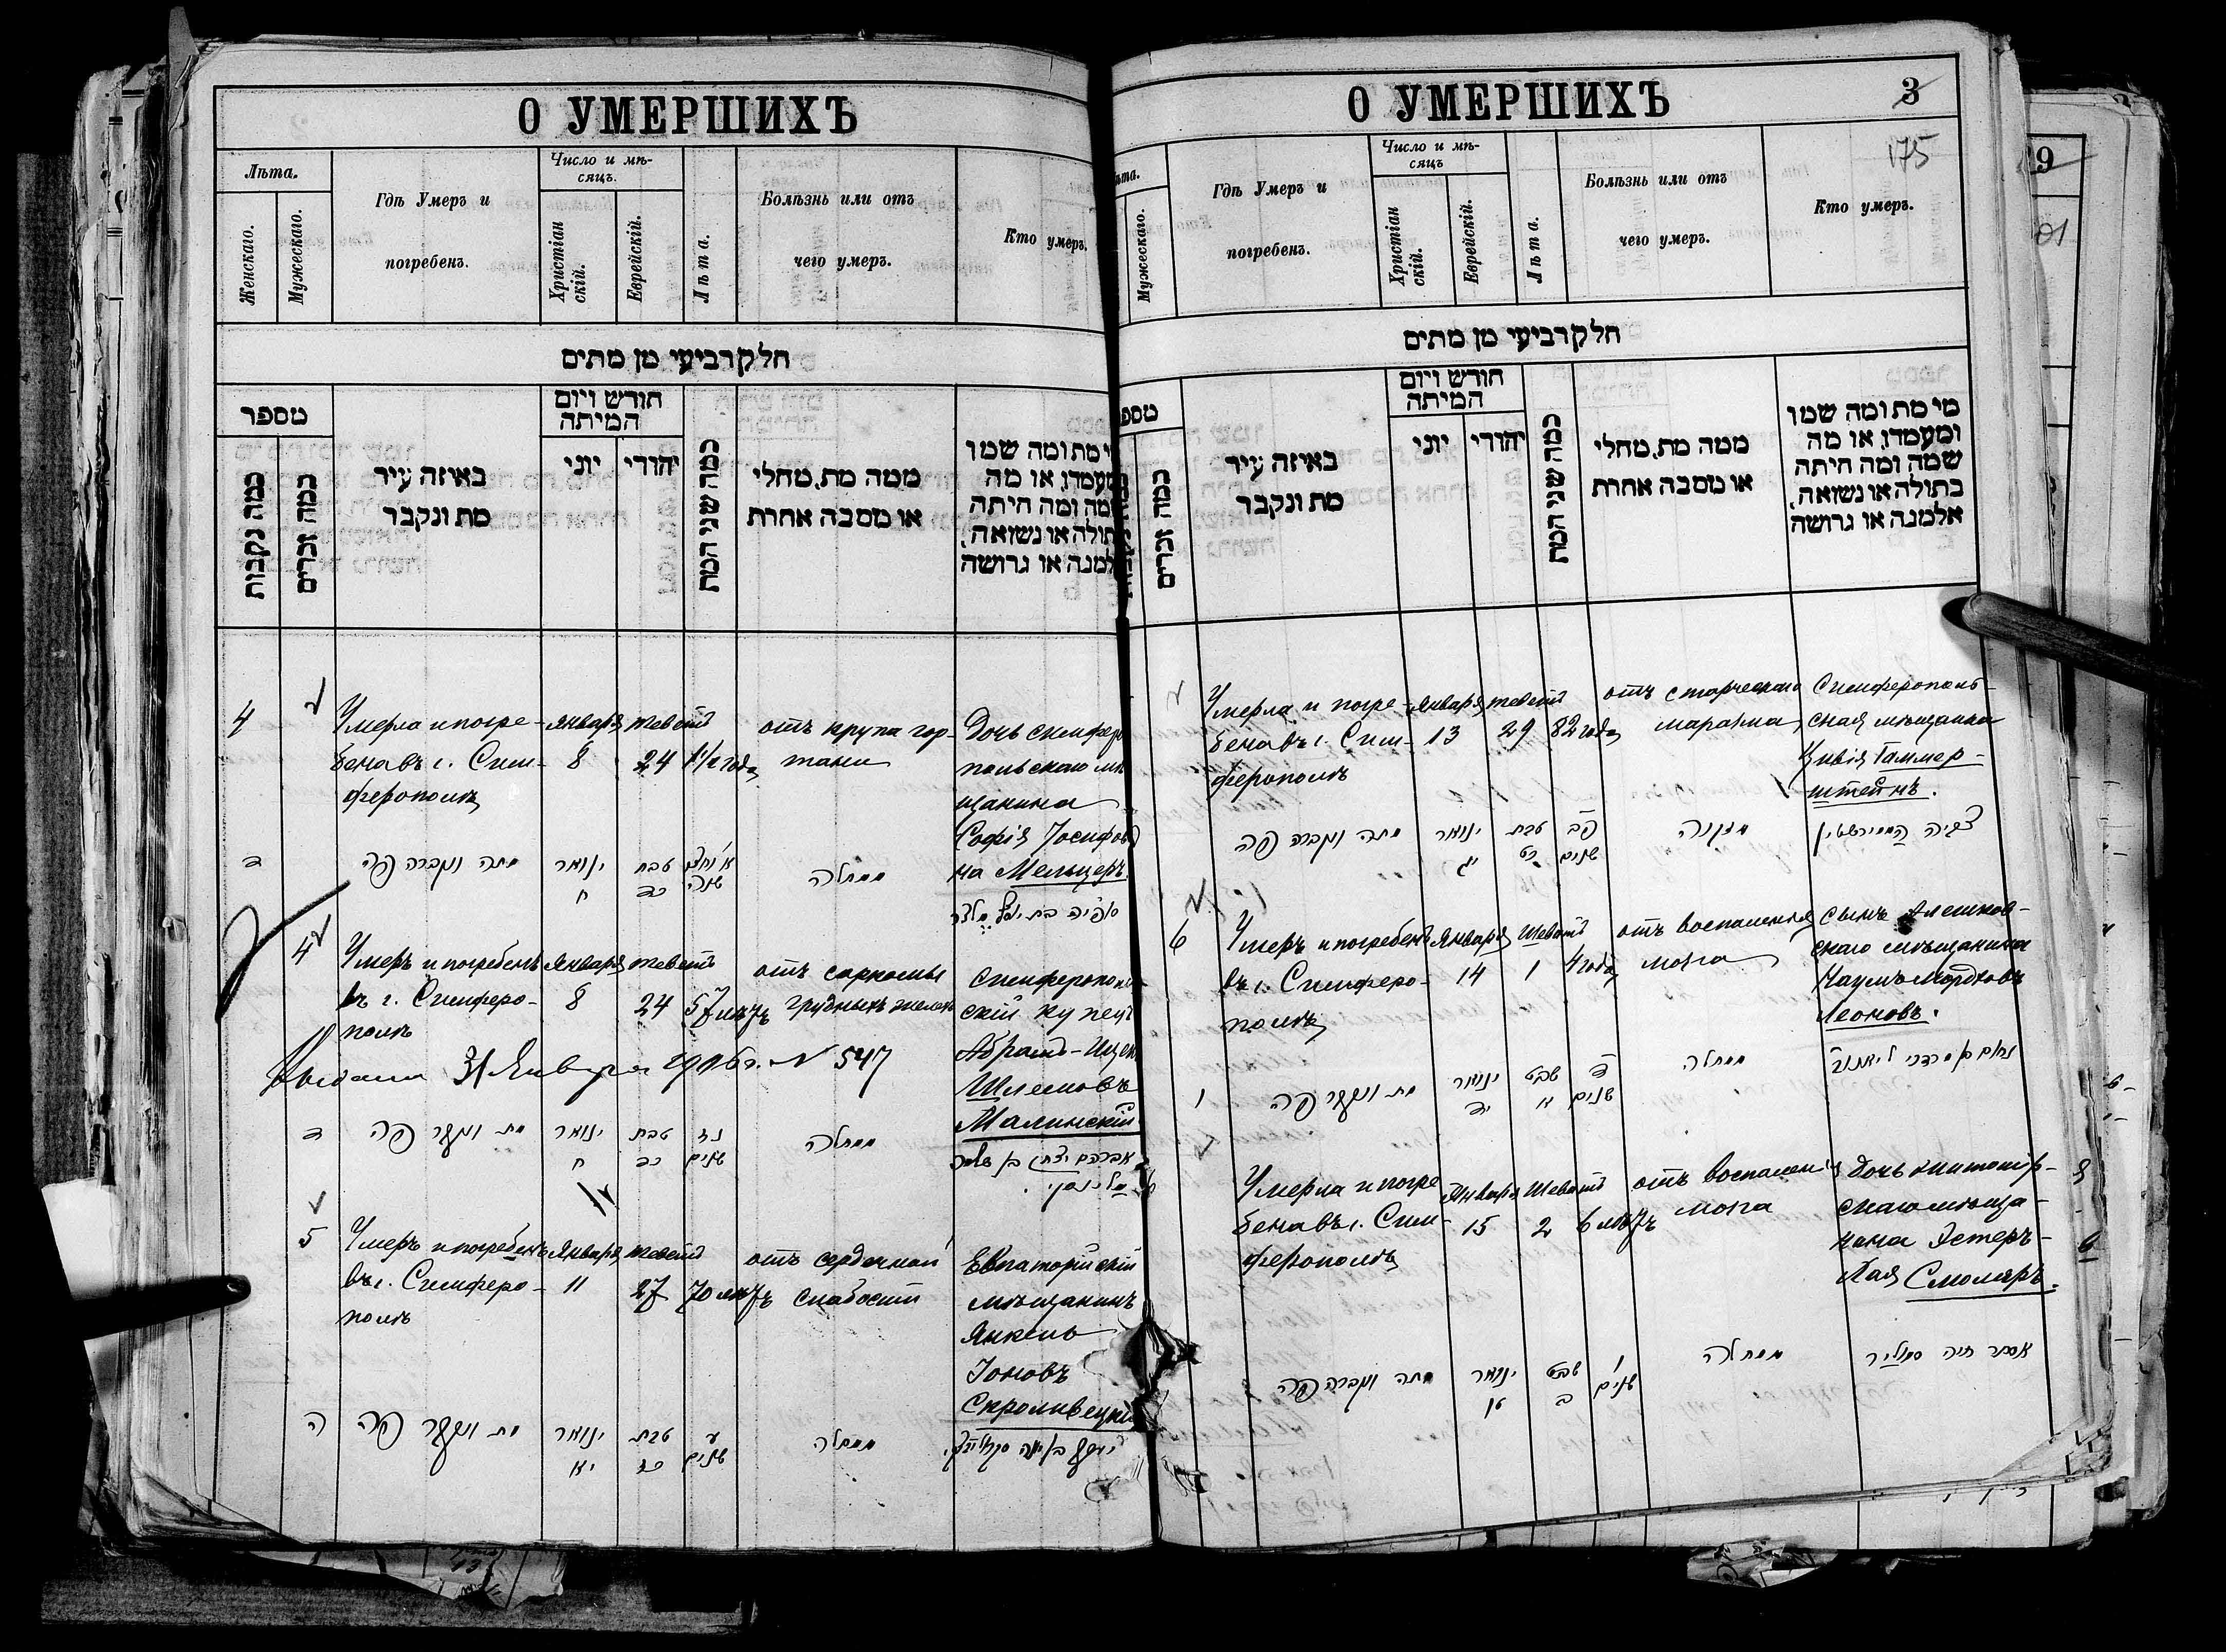 О УМЕРШИХЪ
Лѣта.
Женскаго.
Мужескаго.
Гдѣ Умеръ и
погребенъ.
Число и мѣ-
сяцъ.
Христіан
скій.
Еврейскій.
Лѣта.
Болѣзнь или отъ
чего умеръ.
Кто умеръ.
חלק רביעי מן מתים
מספר
כמה נקבות
כמה זכרים
באיזה עיר
מת ונקבר
חודש ויום
המיתה
יוני
יהודי
כמה שני המת
ממה מת, מחלי
או מסבה אחרת
מי מת ומה שמו
ומעמדו, או מה
שמה ומה היתה
בתולה או נשואה,
אלמנה או גרושה
4
Умерла и погре-
бена въ г. Сим-
ферополѣ
Января
8
теветъ
24
1 1/2 года
отъ крупа гор-
тани
Дочь симферо
польскаго мѣ
щанина
Софія Іосифов
на Мельцеръ.
ד
מתה ונקברה פה
ינואר
ח
טבת
כד
שנה
ממחלה
4
Умеръ и погребенъ
въ г. Симферо-
полѣ
Января
8
тевета
24
57 лѣтъ
отъ саркомы
грудныхъ желез
Симферополь-
скій купецъ
Абрамъ-Ицек
Шлемовъ
Малинскій
31 Января 1916 г. № 547
ד
מת ונקבר פה
ינואר
ח
טבת
כד
נז
שנים
ממחלה
אברהם יצחק בן שלמה
מאלינסקי
5
Умеръ и погребенъ
въ г. Симферо-
полѣ
Января
11
тевета
27
70 лѣтъ
отъ сердечной
слабости
Евпаторійскій
мѣщанинъ
Янкель
Іоновъ
Скроливецкі
ה
מת ונקבר פה
ינואר
יא
טבת
כז
ע
שנים
ממחלה
О УМЕРШИХЪ
3
175
Мужескаго.
Гдѣ Умеръ и
погребенъ.
Число и мѣ-
сяцъ
Христіан
скій.
Еврейскій.
Лѣта.
Болѣзнь или отъ
чего умеръ.
Кто умеръ.
חלק רביעי מן מתים
כמה זכרים
באיזה עיר
מת ונקבר
חודש ויום
המיתה
יוני
יהודי
כמה שני המת
ממה מת, מחלי
או מסבה אחרת
מי מת ומה שמו
ומעמדו, או מה
שמה ומה היתה
בתולה או נשואה,
אלמנה או גרושה
Умерла и погре-
бена въ г. Сим-
ферополѣ
Января
13
тевета
29
82 года
отъ старческаго
маразма
Симферополь-
ская мѣщанка
Цивія Гаммер-
штейнъ.
מתה ונקברה פה
ינואר
יג
טבת
כט
פב
שנים
מזקנה
צביה האמירשטיין
6
Умеръ и погребенъ
въ г. Симферо-
полѣ
Января
14
Шеватъ
1
4 года
отъ воспаленія
мозга
сынъ Алешков-
скаго мѣщанина
Наумъ Мордков
Леоновъ.
ו
מת ונקבר פה
ינואר
יד
שבט
א
ד
שנים
ממחלה
Умерла и погре
бена въ г. Сим-
ферополѣ
Января
15
Шеватъ
2
6 лѣтъ
отъ воспален
мозга
дочь житомір-
скаго мѣща-
нина Эстеръ-
Хая Смоляръ.
מתה ונקברה פה
ינואר
טו
שבט
ב
ו
שנים
ממחלה
אסתר חיה סמוליר
9